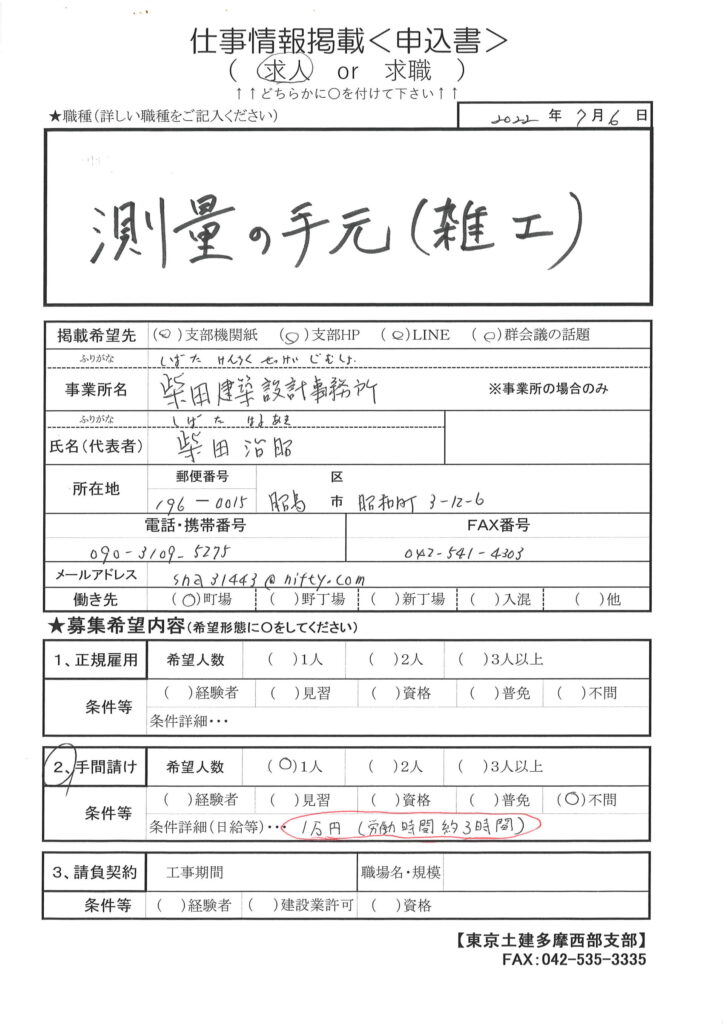 仕事情報掲載＜申込書＞
（ 求人 or 求職 ）
↑↑どちらかに○を付けて下さい↑↑
★職種（詳しい職種をご記入ください）
2022 年 7月 6 日
測量の手元（雑工）
掲載希望先 (○)支部機関紙 (○)支部HP (○)LINE (○)群会議の話題
ふりがな しばた けんちく せっけい じむしょ
事業所名 柴田建築設計事務所 ※事業所の場合のみ
ふりがな しばた はるあき
氏名（代表者） 柴田 治昭
所在地 郵便番号 区
196-0015 昭島 市 昭和町 3-12-6
電話・携帯番号 FAX番号
090-3109-5275 042-541-4303
メールアドレス sha31443@nifty.com
働き先 (○)町場 ( )野丁場 ( )新丁場 ( )入混 ( )他
★募集希望内容（希望形態に○をしてください）
1、正規雇用 希望人数 ( )1人 ( )2人 ( )3人以上
条件等 ( )経験者 ( )見習 ( )資格 ( )普免 ( )不問
条件詳細・・・
2、手間請け 希望人数 (○)1人 ( )2人 ( )3人以上
条件等 ( )経験者 ( )見習 ( )資格 ( )普免 (○)不問
条件詳細（日給等）・・・ 1万円（労働時間 約3時間）
3、請負契約 工事期間 職場名・規模
条件等 ( )経験者 ( )建設業許可 ( )資格
【東京土建多摩西部支部】
FAX：042-535-3335